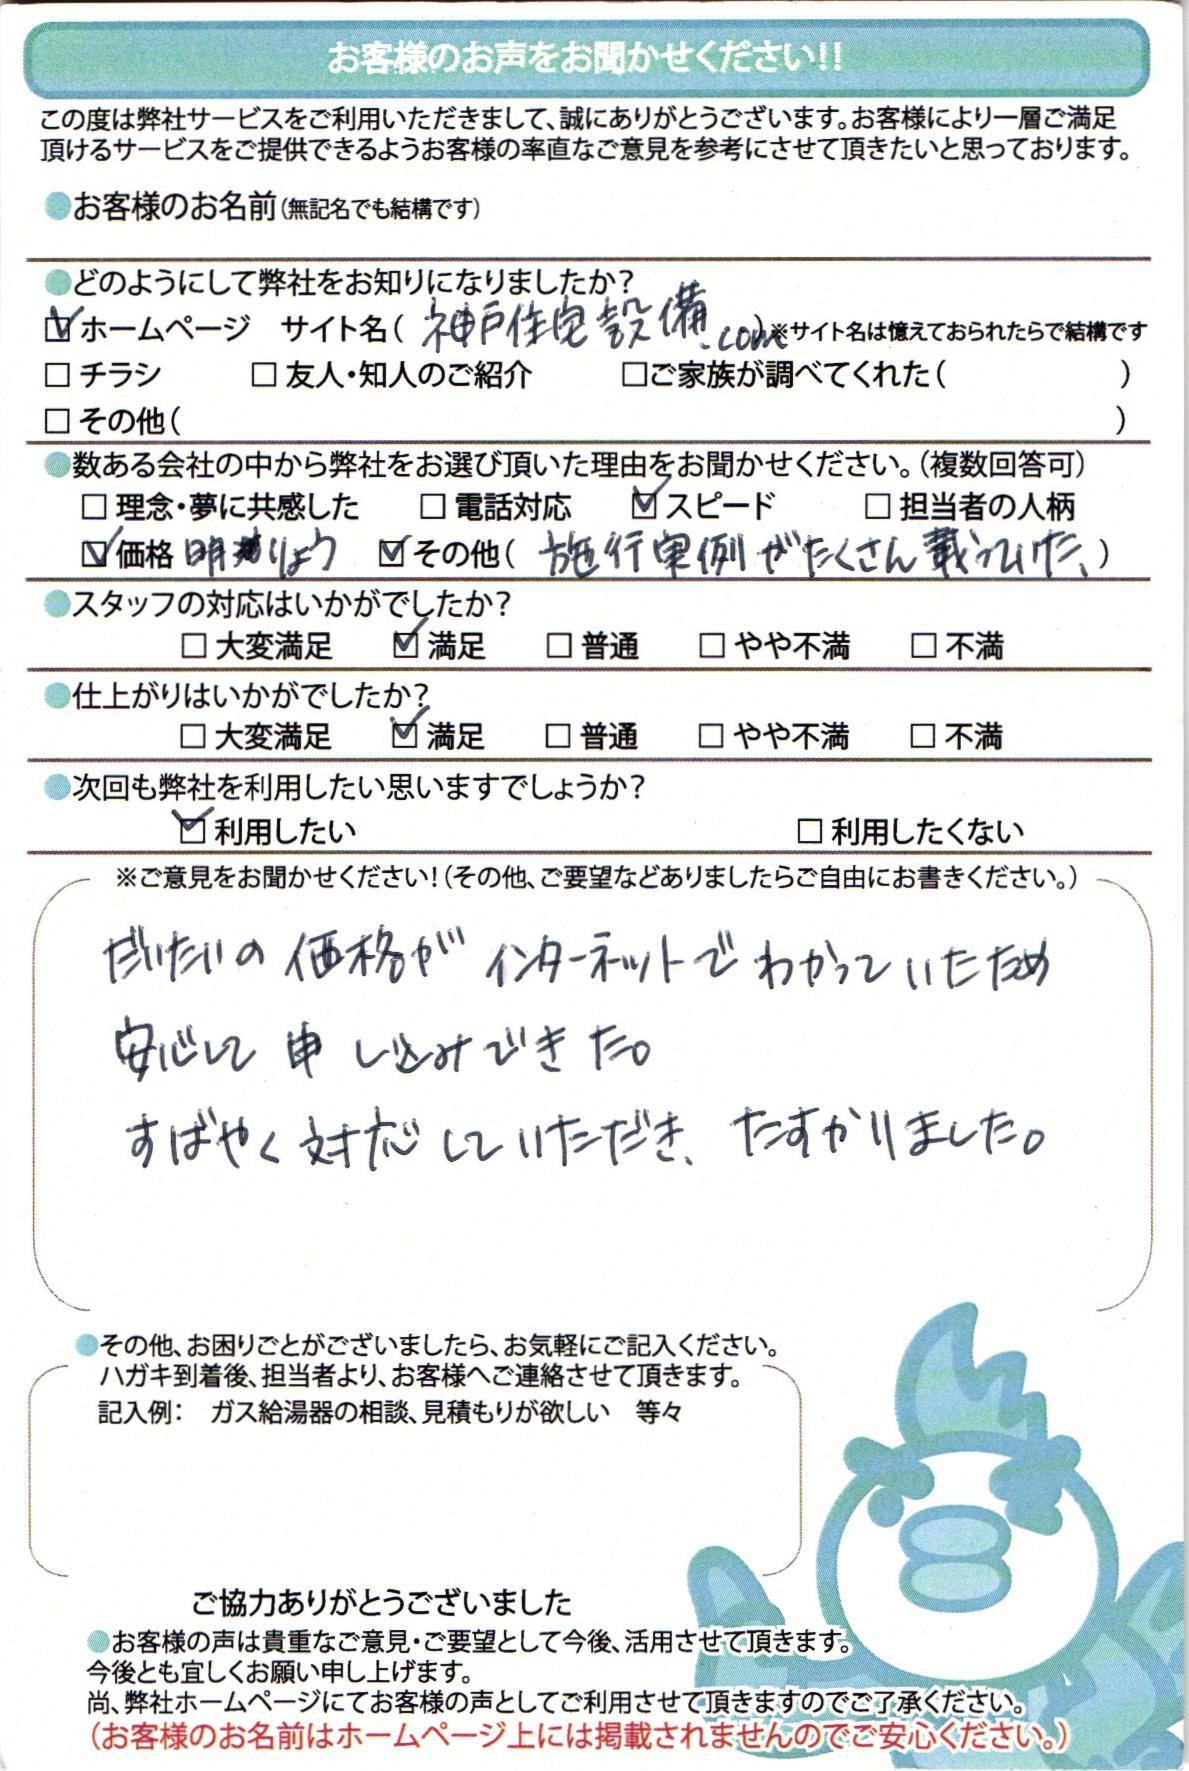 お客様のお声をお聞かせください!!
この度は弊社サービスをご利用いただきまして、誠にありがとうございます。お客様により一層ご満足
頂けるサービスをご提供できるようお客様の率直なご意見を参考にさせて頂きたいと思っております。
●お客様のお名前(無記名でも結構です)
●どのようにして弊社をお知りになりましたか?
☑ホームページ サイト名( 神戸住宅設備.com )※サイト名は憶えておられたらで結構です
□チラシ □友人・知人のご紹介 □ご家族が調べてくれた( )
□その他( )
●数ある会社の中から弊社をお選び頂いた理由をお聞かせください。(複数回答可)
□理念・夢に共感した □電話対応 ☑スピード □担当者の人柄
☑価格 明りょう ☑その他( 施行実例がたくさん載っていた、)
●スタッフの対応はいかがでしたか?
□大変満足 ☑満足 □普通 □やや不満 □不満
●仕上がりはいかがでしたか?
□大変満足 ☑満足 □普通 □やや不満 □不満
●次回も弊社を利用したい思いますでしょうか?
☑利用したい □利用したくない
※ご意見をお聞かせください!(その他、ご要望などありましたらご自由にお書きください。)
だいたいの価格がインターネットでわかっていたため
安心して申し込みできた。
すばやく対応していただき、たすかりました。
●その他、お困りごとがございましたら、お気軽にご記入ください。
ハガキ到着後、担当者より、お客様へご連絡させて頂きます。
記入例: ガス給湯器の相談、見積もりが欲しい 等々
ご協力ありがとうございました
●お客様の声は貴重なご意見・ご要望として今後、活用させて頂きます。
今後とも宜しくお願い申し上げます。
尚、弊社ホームページにてお客様の声としてご利用させて頂きますのでご了承ください。
(お客様のお名前はホームページ上には掲載されませんのでご安心ください。)